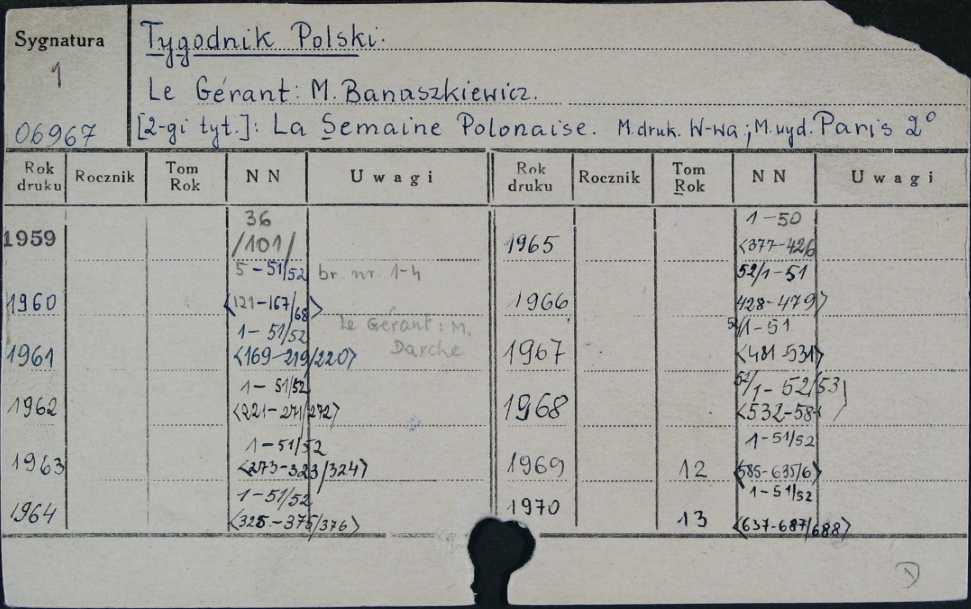 Sygnatura
1
06967
Tygodnik Polski.
Le Gérant: M. Banaszkiewicz.
[2-gi tyt.]: La Semaine Polonaise. M.druk. W-wa; M.wyd. Paris 2°
Rok druku Rocznik Tom Rok NN Uwagi Rok druku Rocznik Tom Rok NN Uwagi
1959 36 /101/
1960 5-51/52 <121-167/68> br. nr. 1-4
1961 1-51/52 <169-219/220> Le Gérant: M. Darche
1962 1-51/52 <221-271/272>
1963 1-51/52 <273-323/324>
1964 1-51/52 <325-375/376>
1965 1-50 <377-426
1966 52/1-51 428-479>
1967 52/1-51 <481-531>
1968 52/1-52/53 <532-58
1969 12 1-51/52 <585-635/6>
1970 13 1-51/52 <637-687/688>
1